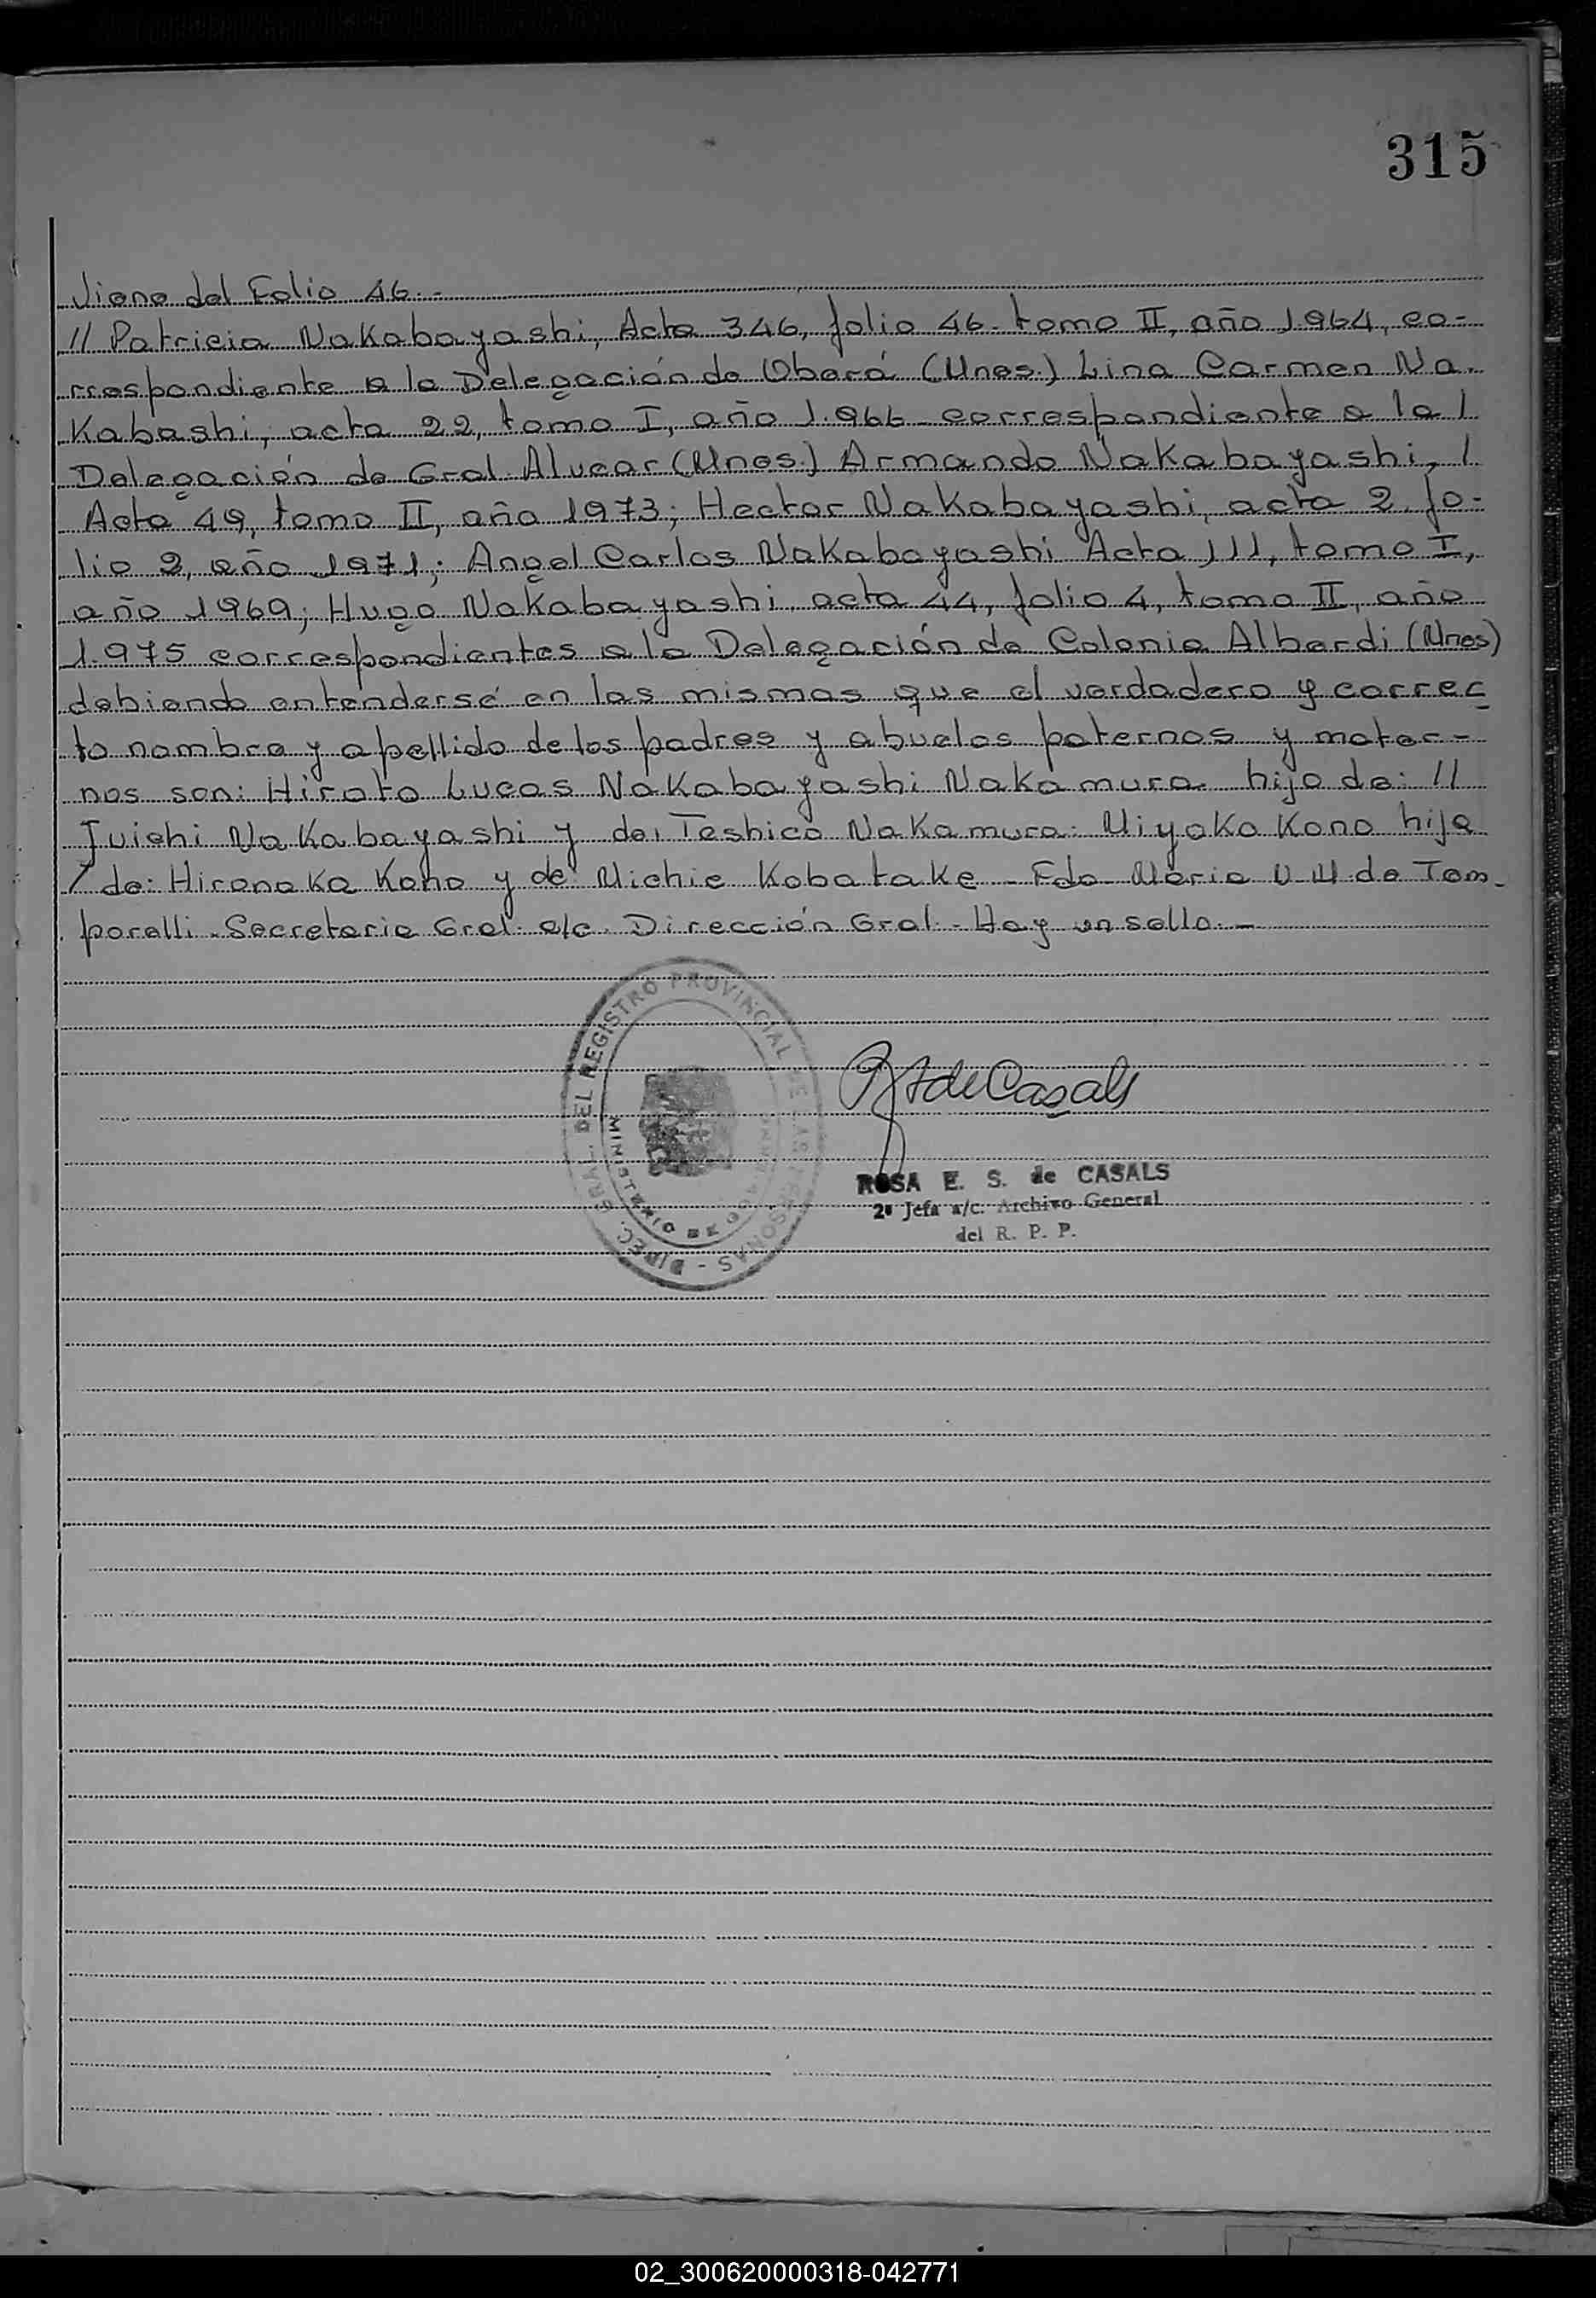 315
Viene del Folio 46.-
// Patricia Nakabayashi, Acta 346, folio 46- tomo II, año 1.964, co-
rrespondiente a la Delegación de Oberá (Mnes.) Lina Carmen Na-
kabashi, acta 22, tomo I, año 1.966- correspondiente a la /
Delegación de Gral. Alvear (Mnes.) Armando Nakabayashi, /
Acta 49, tomo II, año 1973; Hector Nakabayashi, acta 2, fo-
lio 2, año 1971; Angel Carlos Nakabayashi Acta 111, tomo I,
año 1969; Hugo Nakabayashi, acta 44, folio 4, tomo II, año
1.975 correspondientes a la Delegación de Colonia Alberdi (Mnes)
debiendo entenderse en las mismas que el verdadero y correc
to nombre y apellido de los padres y abuelos paternos y mater-
nos son: Hirato Lucas Nakabayashi Nakamura hijo de: //
Juichi Nakabayashi y de: Teshico Nakamura: Miyoko Kono hija
/ de: Hironaka Kono y de Michie Kobatake - Fdo María de Tem-
porelli - Secretaria Gral. a/c. Dirección Gral. - Hay un sello. -
DIREC. GRAL. DEL REGISTRO PROVINCIAL DE LAS PERSONAS -
MINISTERIO DE
R de Casals
ROSA E. S. de CASALS
2ª Jefa a/c. Archivo General
del R. P. P.
02_300620000318-042771